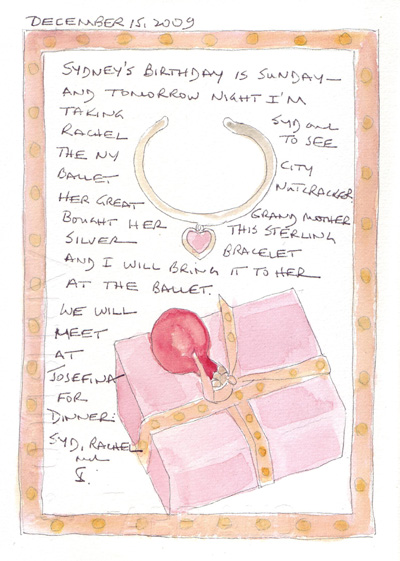 DECEMBER 15, 2009
SYDNEY'S BIRTHDAY IS SUNDAY—
AND TOMORROW NIGHT I'M
TAKING SYD and
RACHEL TO SEE
THE NY CITY
BALLET NUTCRACKER
HER GREAT GRAND MOTHER
BOUGHT HER THIS STERLING
SILVER BRACELET
AND I WILL BRING IT TO HER
AT THE BALLET.
WE WILL
MEET
AT
JOSEFINA
FOR
DINNER:
SYD, RACHEL
and
I.